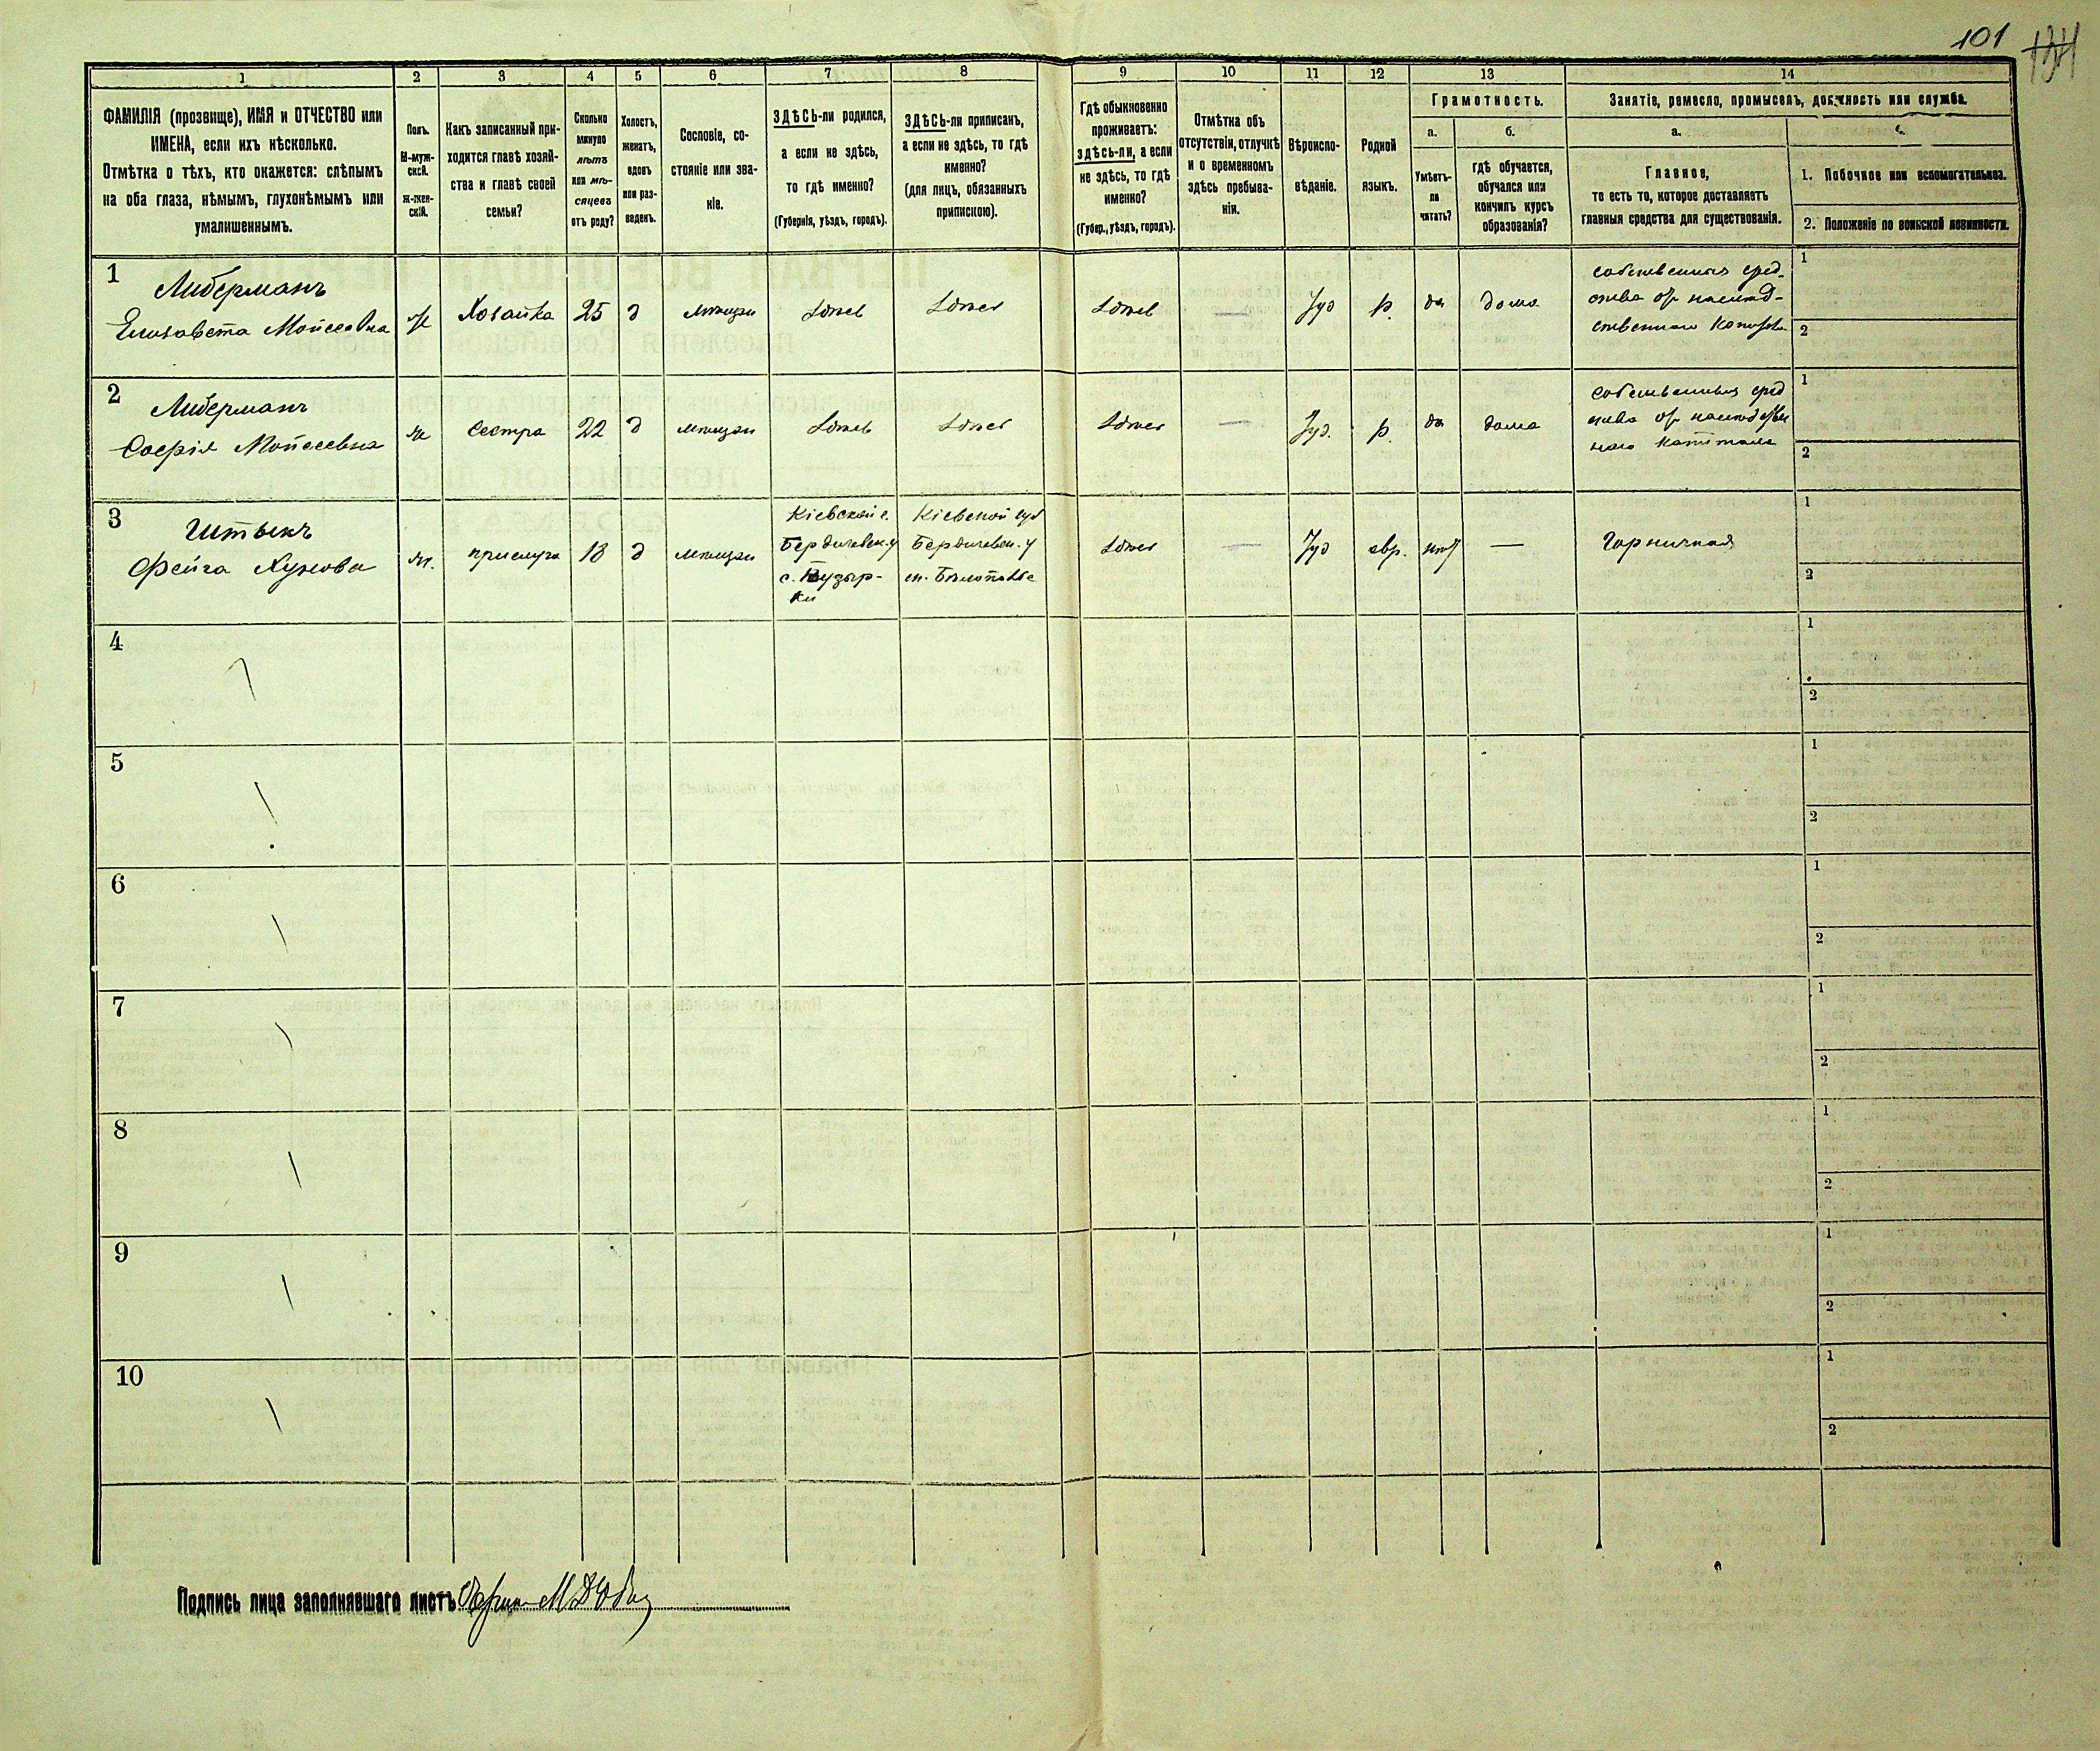 101
134
1
2
3
4
5
6
7
8
9
10
11
12
13
14
ФАМИЛІЯ (прозвище), ИМЯ и ОТЧЕСТВО или
ИМЕНА, если ихъ нѣсколько.
Отмѣтка о тѣхъ, кто окажется: слѣпымъ
на оба глаза, нѣмымъ, глухонѣмымъ или
умалишеннымъ.
Полъ.
М-муж-
ской.
Ж-жен-
скій.
Какъ записанный при-
ходится главѣ хозяй-
ства и главѣ своей
семьи?
Сколько
минуло
лѣтъ
или мѣ-
сяцевъ
отъ роду?
Холостъ,
женатъ,
вдовъ
или раз-
веденъ.
Сословіе, со-
стояніе или зва-
ніе.
ЗДѢСЬ-ли родился,
а если не здѣсь,
то гдѣ именно?
(Губернія, уѣздъ, городъ).
ЗДѢСЬ-ли приписанъ,
а если не здѣсь, то гдѣ
именно?
(для лицъ, обязанныхъ
припискою).
Гдѣ обыкновенно
проживаетъ:
здѣсь-ли, а если
не здѣсь, то гдѣ
именно?
(Губер., уѣздъ, городъ).
Отмѣтка объ
отсутствіи, отлучкѣ
и о временномъ
здѣсь пребыва-
ніи.
Вѣроиспо-
вѣданіе.
Родной
языкъ.
Грамотность.
а.
Умѣетъ-
ли
читать?
б.
гдѣ обучается,
обучался или
кончилъ курсъ
образованія?
Занятіе, ремесло, промыселъ, должность или служба.
а.
Главное,
то есть то, которое доставляетъ
главныя средства для существованія.
1. Побочное или вспомогательное.
2. Положеніе по воинской повинности.
1
Либерманъ
Елизавета Моисеевна
ж
Хозяйка
25
д
мѣщан
Здѣсь
Здѣсь
Здѣсь
—
Іуд
р.
да
дома
собственныя сред-
ства отъ наслѣд-
ственнаго
1
2
2
Либерманъ
Софія Моисеевна
ж
сестра
22
д
мѣщан
Здѣсь
Здѣсь
Здѣсь
—
Іуд.
р.
да
дома
собственныя сред
ства отъ наслѣдствен
наго капитала
1
2
3
Штыкъ
Фейга Хунова
ж.
прислуга
18
д
мѣщан
Кіевской г.
Бердичевск. у
с. Пузыр-
ки
Кіевской губ
Бердичевск. у
м. Бѣлополье
Здѣсь
—
Іуд
евр.
нѣтъ
—
Горничная
1
2
4
1
2
5
1
2
6
1
2
7
1
2
8
1
2
9
1
2
10
1
2
Подпись лица заполнявшаго листъ